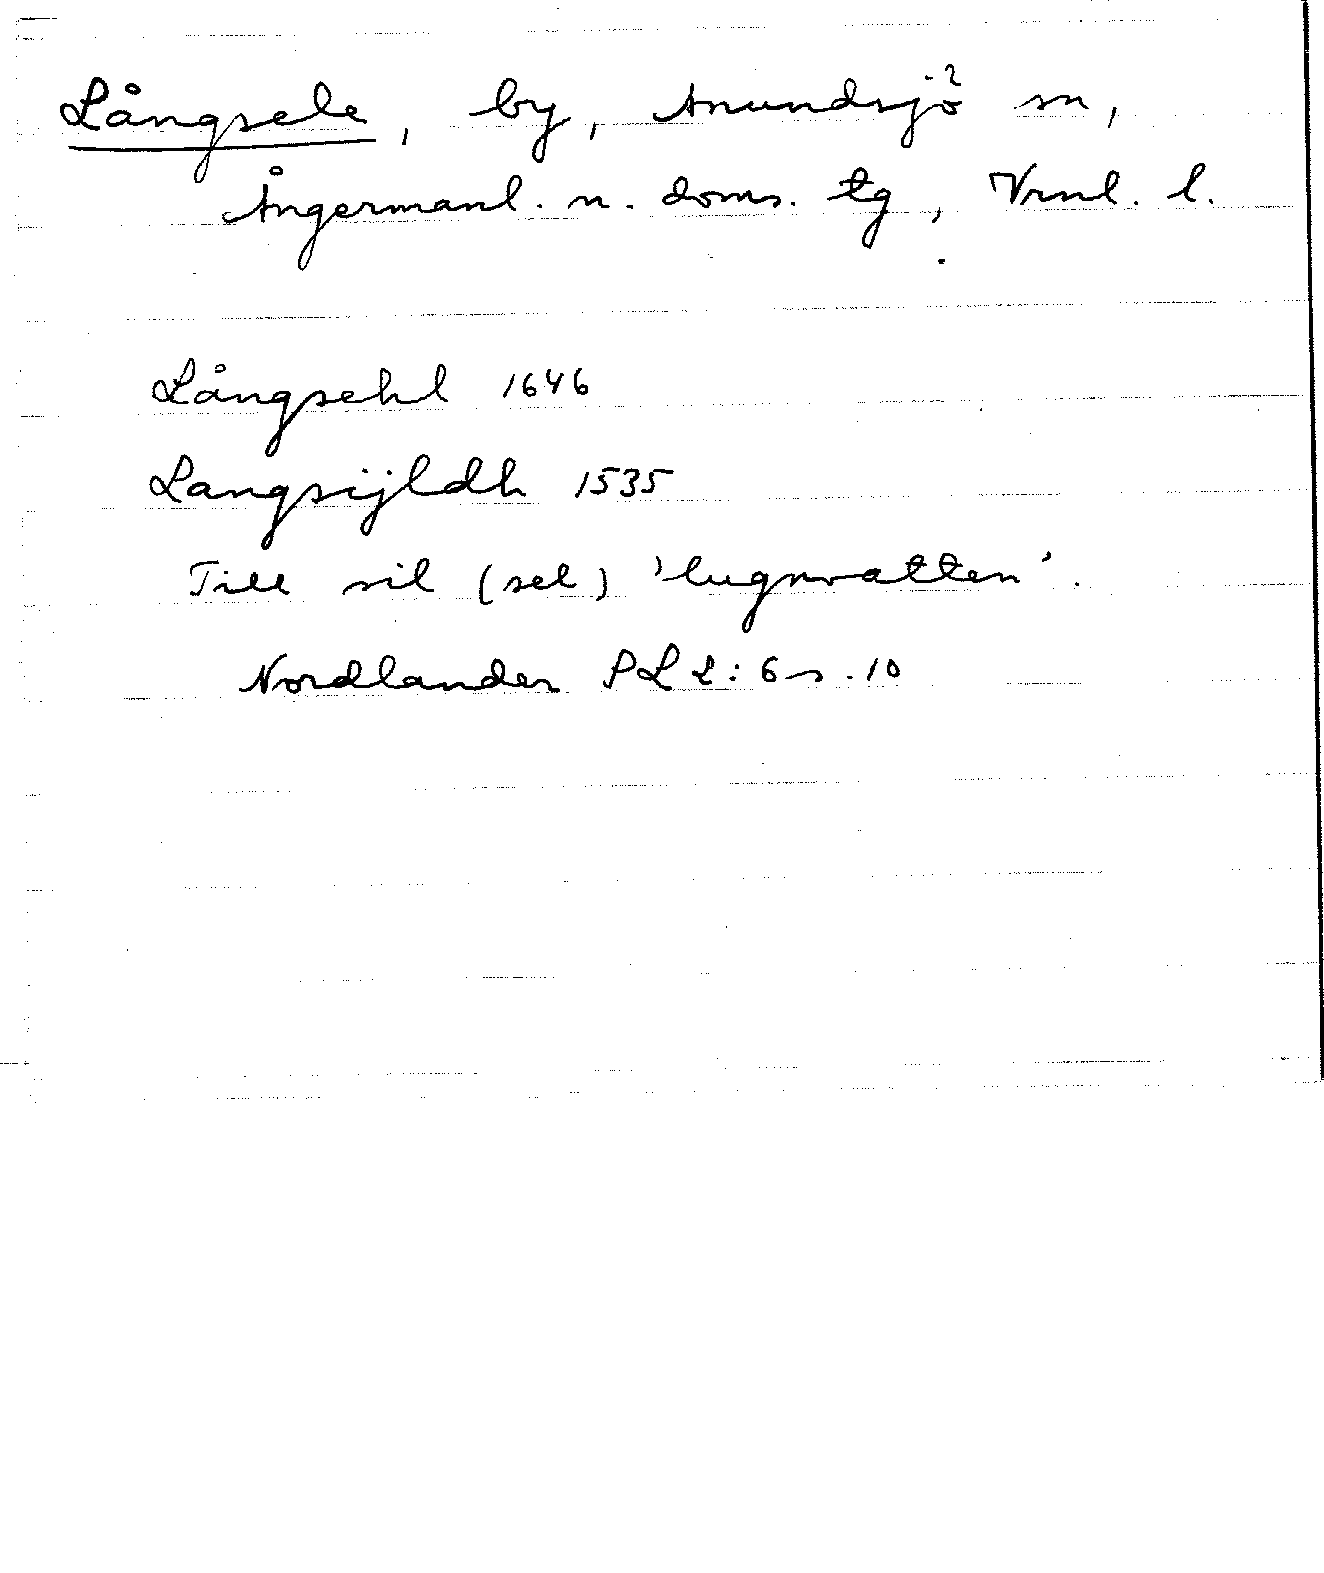 Långsele, by, Anundsjö sn,
Ångermanl. n. doms. tg, Vrnl. l.
Långsehl 1646
Langsijldh 1535
Till sil (sel) 'lugnvatten'.
Nordlander PL 2:6 s. 10